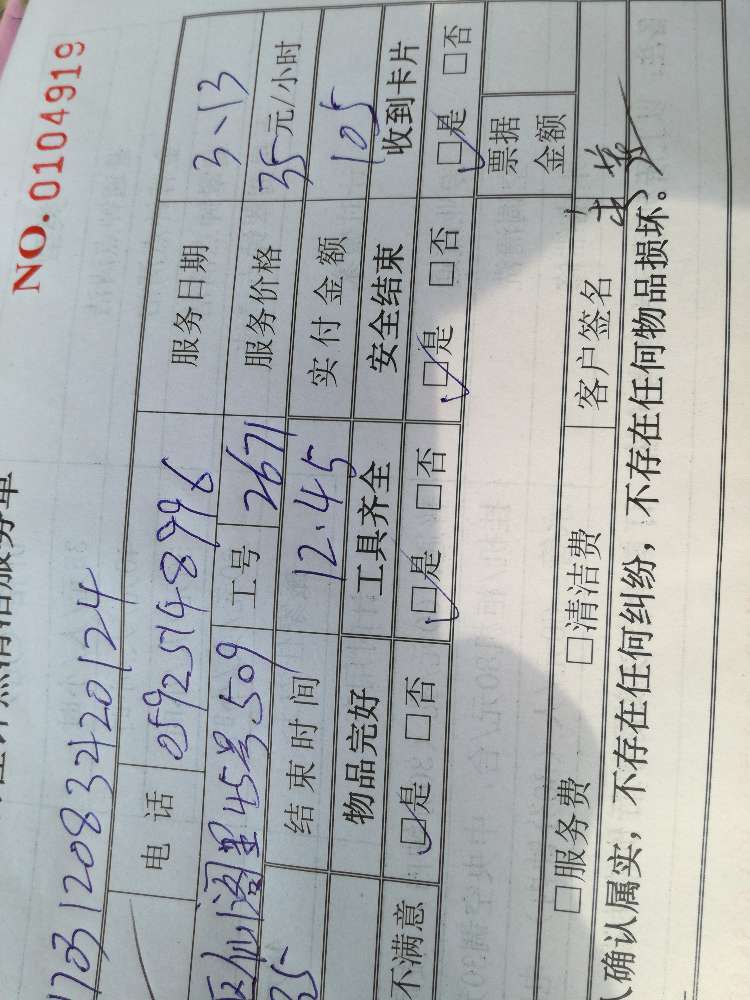 NO. 0104919
清洁服务单
70312083420124
电话 05925748996 服务日期 3、13
仙阁里45号509 工号 2671 服务价格 35元/小时
35 结束时间 12.45 实付金额 105
物品完好 工具齐全 安全结束 收到卡片
不满意 □是 □否 □是 □否 □是 □否 □是 □否
票据金额
□服务费 □清洁费 客户签名
确认属实，不存在任何纠纷，不存在任何物品损坏。